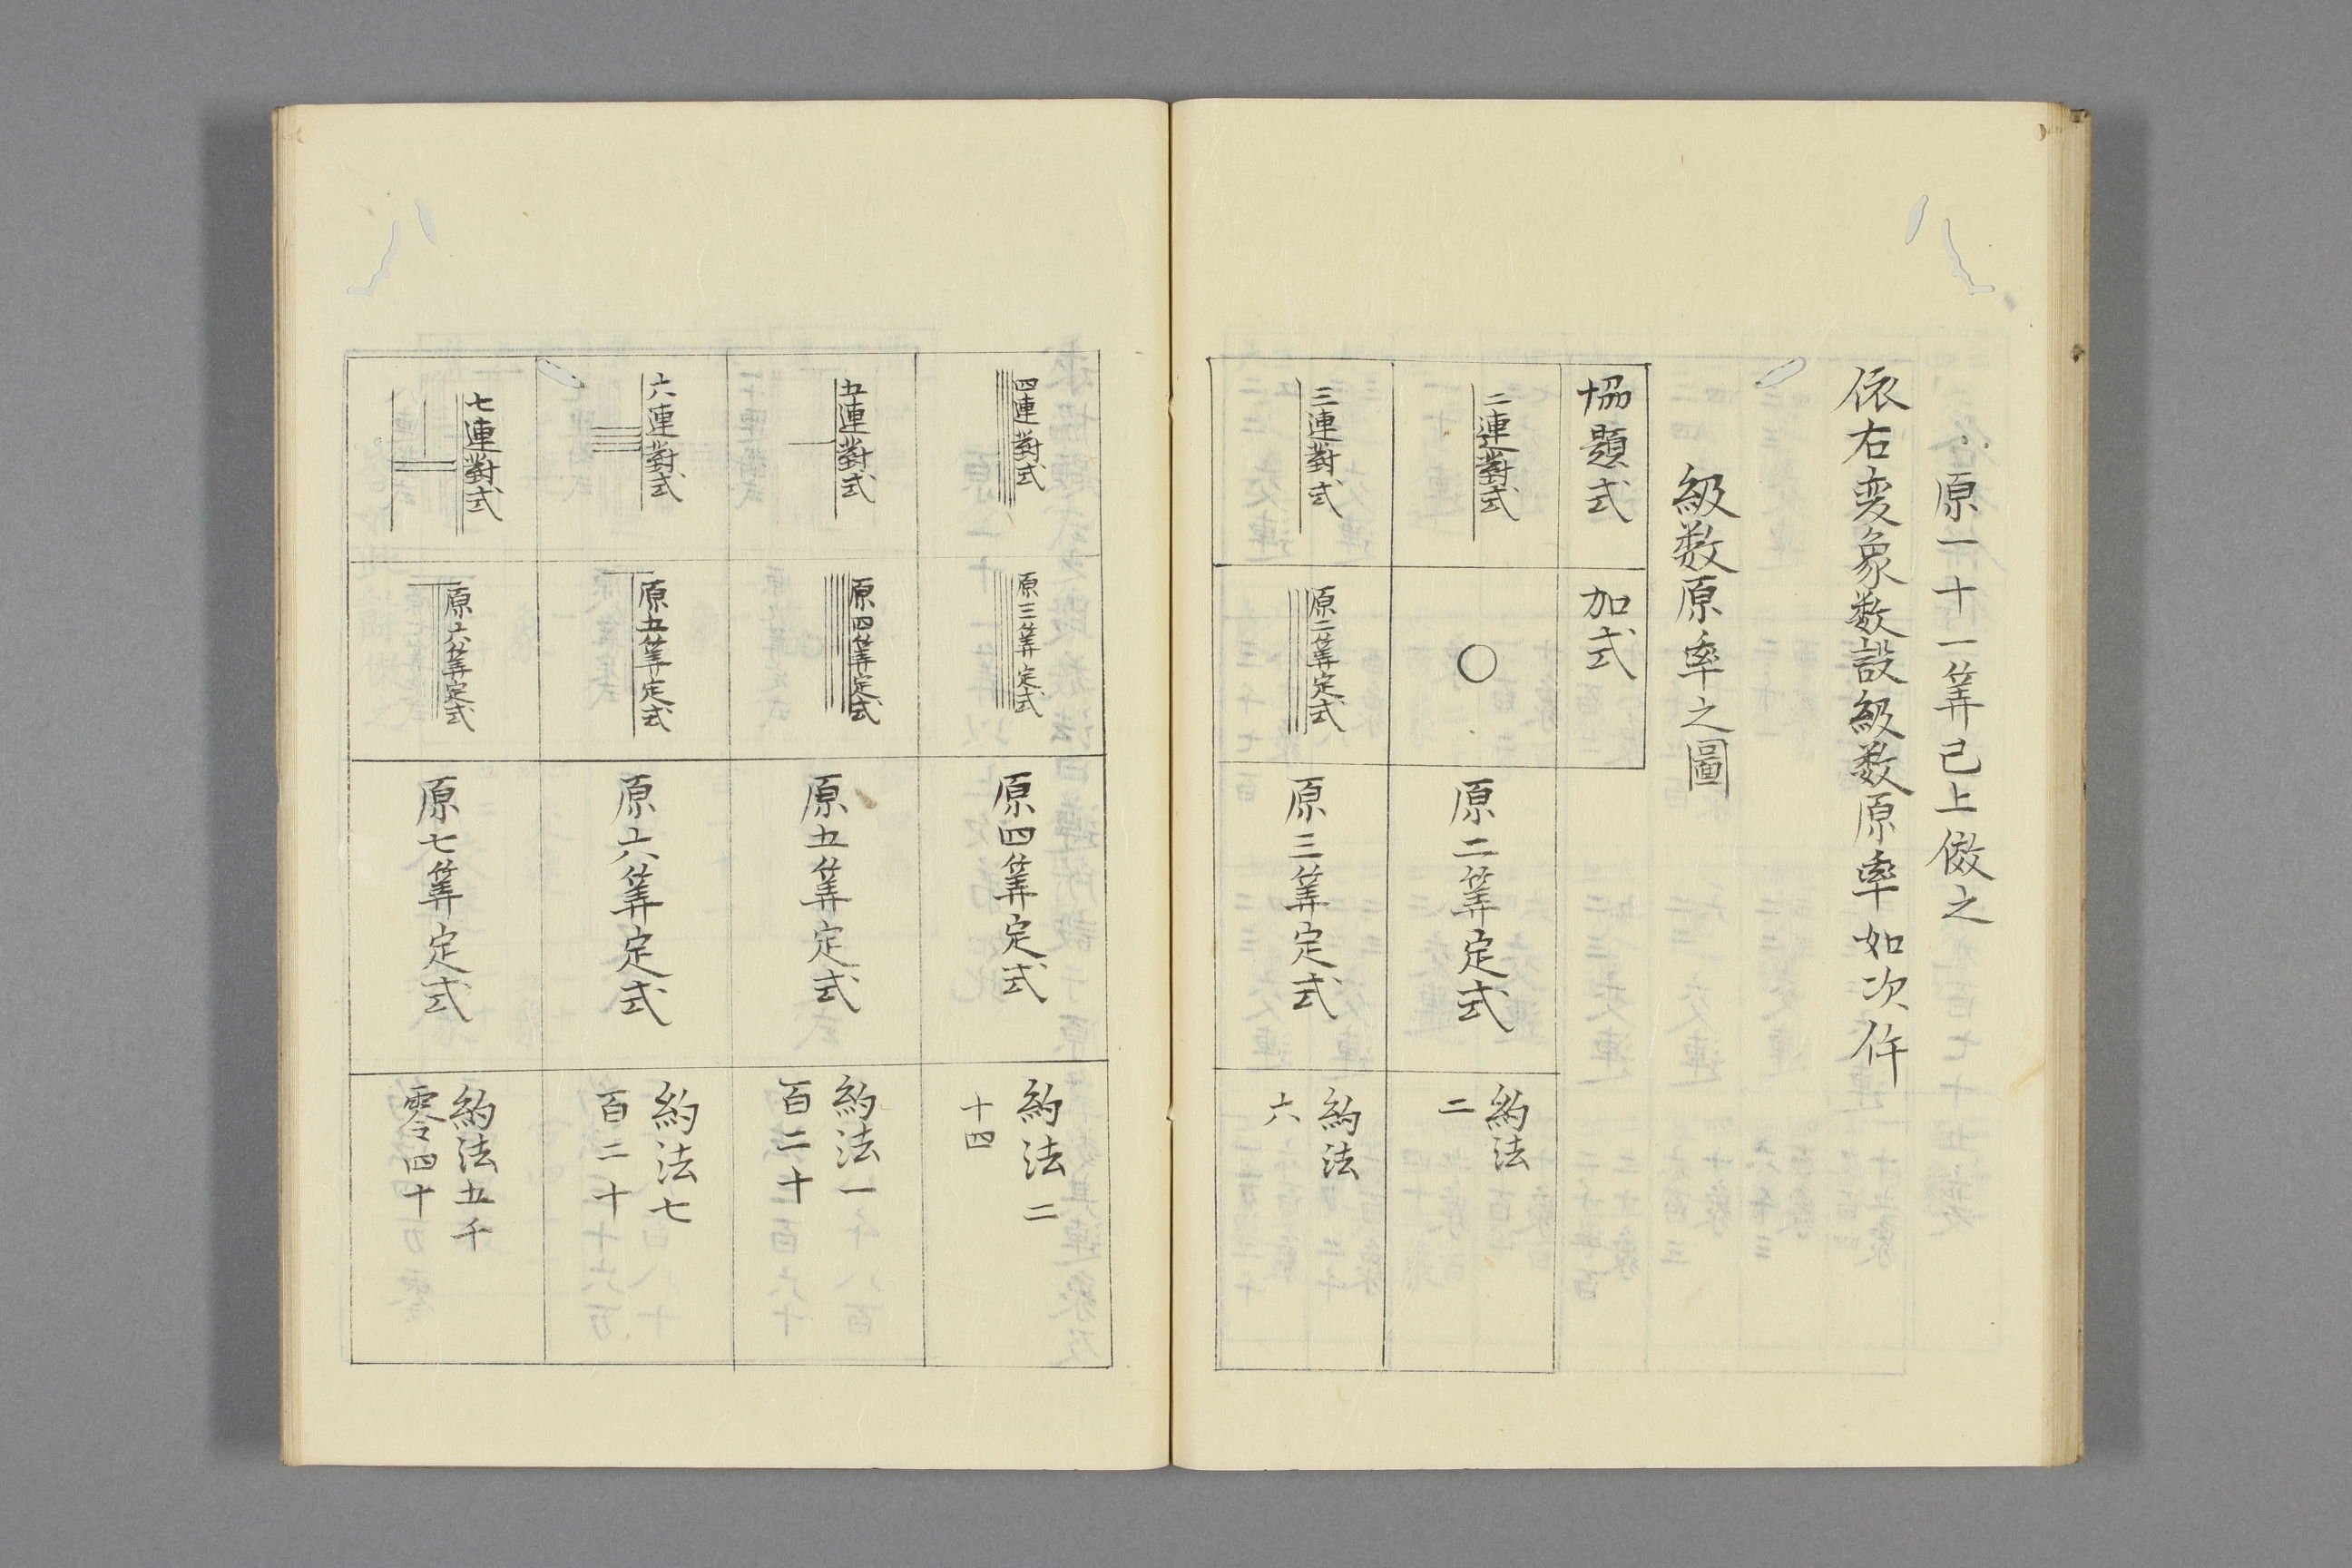 原一十一筭已上倣之
依右变象数設級数原率如次件
級数原率之圖
協題式
加式
二連對式
〇
原二筭定式
約法
二
三連對式
原二筭定式
原三筭定式
約法
六
四連對式
原三筭定式
原四筭定式
約法二
十四
五連對式
原四筭定式
原五筭定式
約法一
百二十
六連對式
原五筭定式
原六筭定式
約法七
百二十
七連對式
原六筭定式
原七筭定式
約法五千
零四十